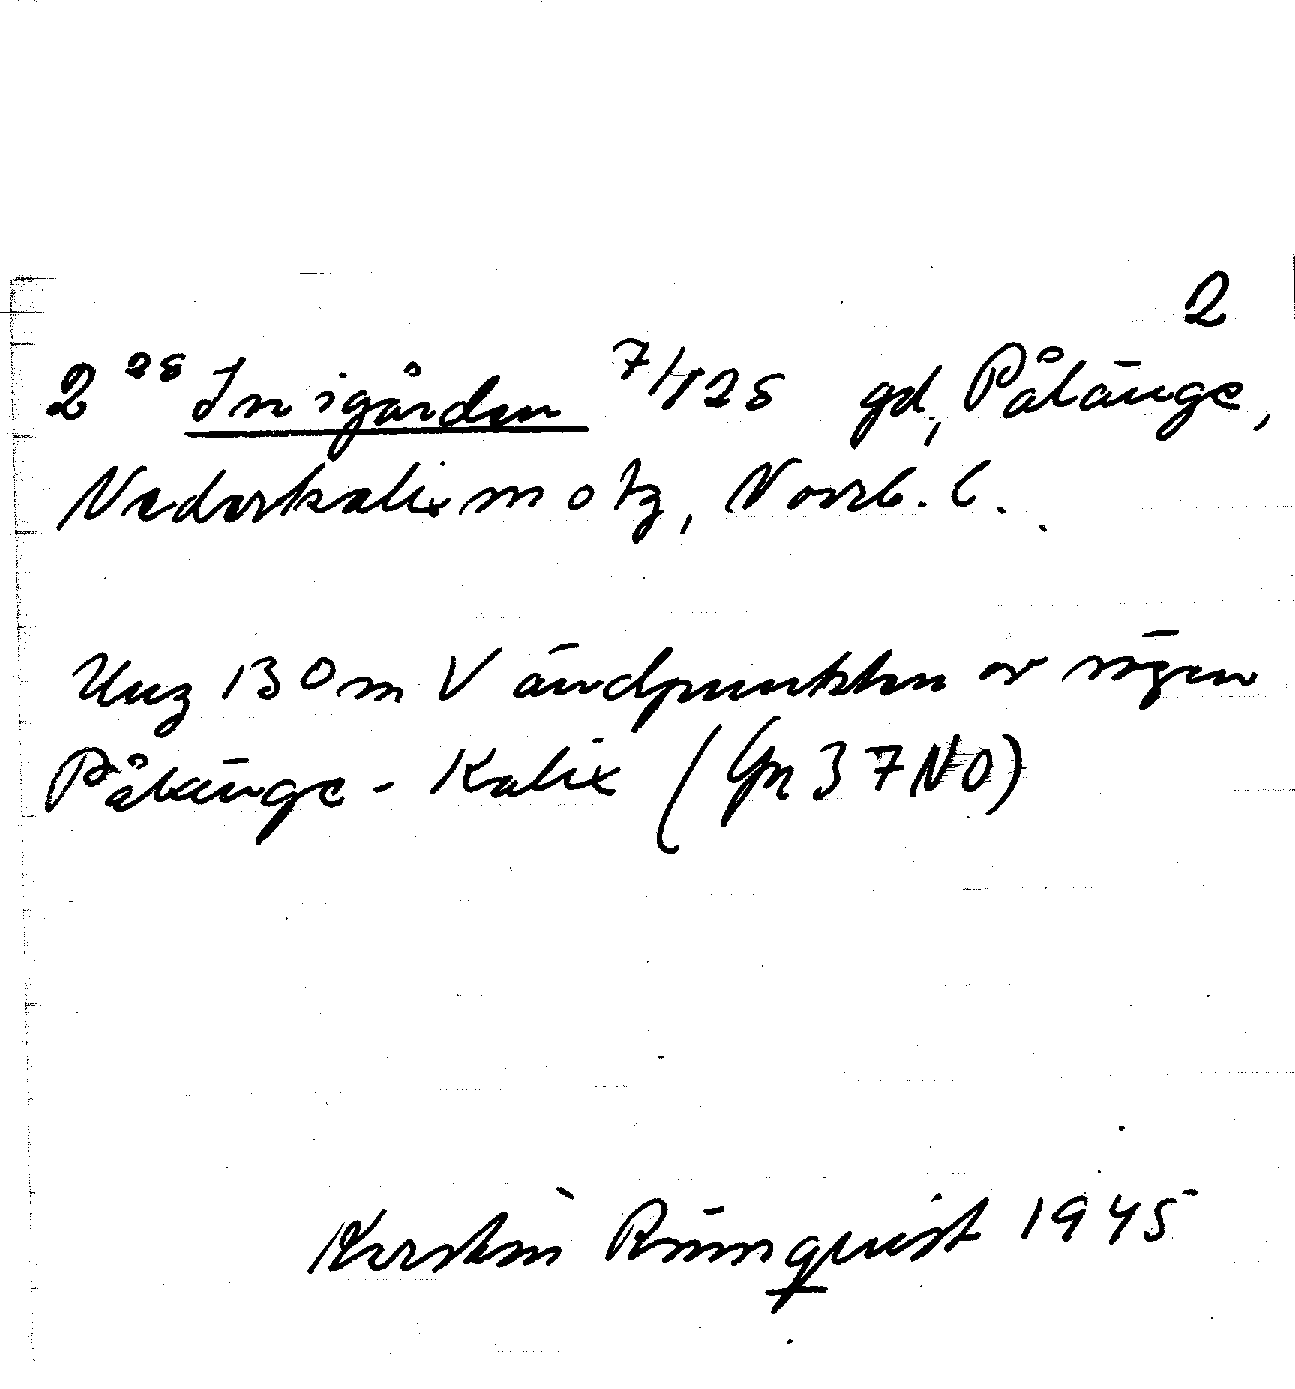 2
2²⁸ Inigården ⁷/₁₁25 gd, Pålänge,
Nederkalix motz, Norrb. l.
Ung 130 m V ändpunkten av vägen
Pålänge - Kalix (Gn 37 NO)
Kerstin Rönnquist 1945